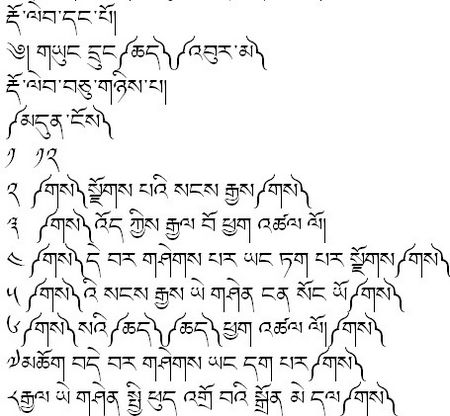 རྡོ་ལེབ་དང་པོ།
༄། གཡུང དྲུང༼ཆད༽༼འབུར་མ༽
རྡོ་ལེབ་བཅུ་གཉིས་པ།
༼མདུན་ངོས༽
༡ ༡༢
༢ ༼གས༽སྫོགས པའི སངས རྒྱས༼གས༽
༣ ༼གས༽འོད ཀྱིས རྒྱལ བོ ཕྱག འཚལ ལོ།
༤ ༼གས༽དེ བར གཤེགས པར ཡང ཏག པར སྫོགས༼གས༽
༥ ༼གས༽འི སངས རྒྱས ཡེ གཤེན ངན སོང ཡོ༼གས༽
༦ ༼གས༽སའི༼ཆད༽༼ཆད༽ཕྱག འཚལ ལོ།༼གས༽
༧མཆོག བདེ བར གཤེགས ཡང དག པར༼གས༽
༨རྒྱལ ཡེ གཤེན སྤྱི ཕུད འགྲོ བའི སྒྲོན མེ དལ༼གས༽